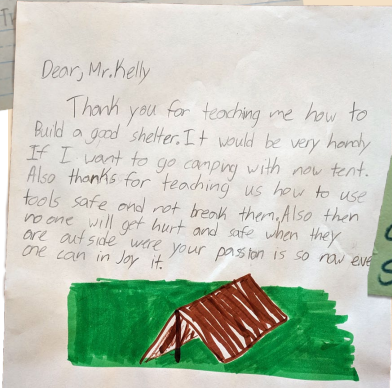 Dear, Mr. Kelly
Thank you for teaching me how to
Build a good shelter. It would be very handy
If I want to go camping with now tent.
Also thanks for teaching us how to use
tools safe and not break them. Also then
no one will get hurt and safe when they
are outside were your passion is so now eve
one can in Joy it.